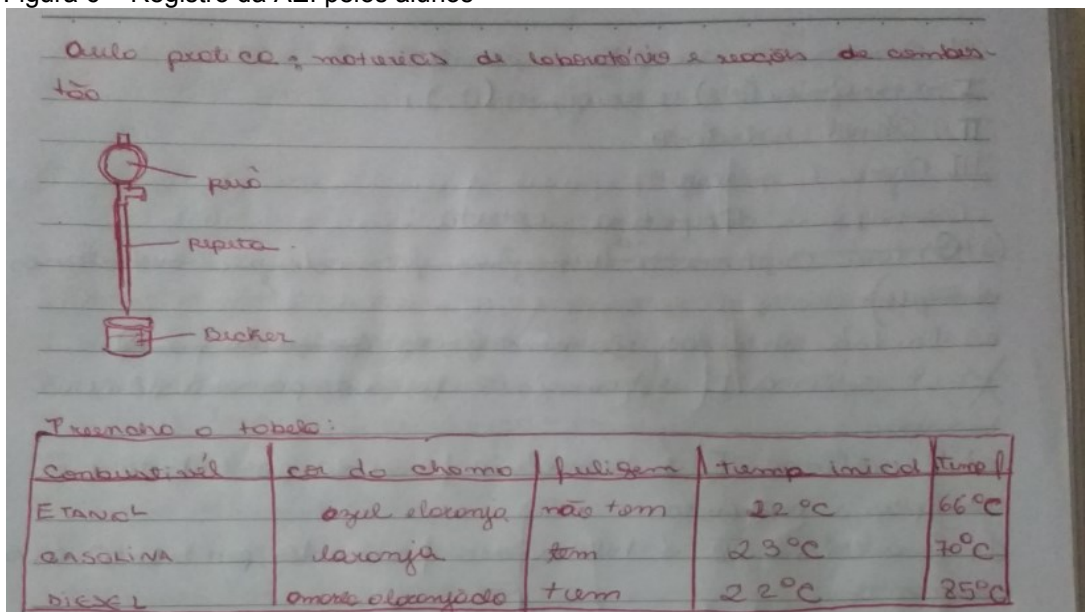 Aula pratica: materiais de laboratório e reações de combus-
tão
pipeta
Becker
Preencha a tabela:
Conbustivél cor da chama fuligem temp inicial temp f
ETANOL azul alaranja não tem 22°C 66°C
GASOLINA laranja tem 23°C 70°C
DIESEL alaranjado tem 22°C 85°C